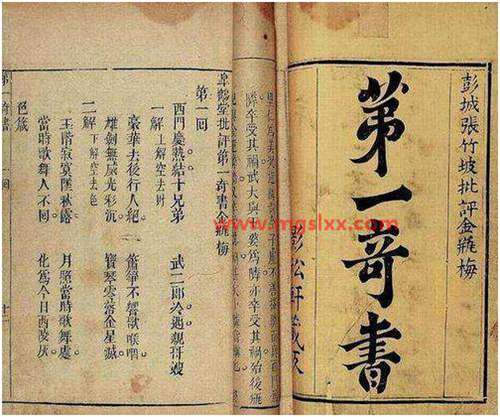 彭城張竹坡批評金瓶梅
第一奇書
卒受其禍武大與王婆為鄰亦卒受其禍
皐鶴堂批評第一奇書金瓶梅
第一回
西門慶熱結十兄弟 武二郎冷遇親哥嫂
一解 上解空去財
豪華去後行人絕 簫箏不響歌喉咽
雄劍無威光彩沉 寶琴零落金星滅
二解 下解空去色
玉階寂寞墜秋露 月照當時歌舞處
當時歌舞人不回 化為今日西陵灰
色箴
第一奇書 一回
www.mgslxx.com